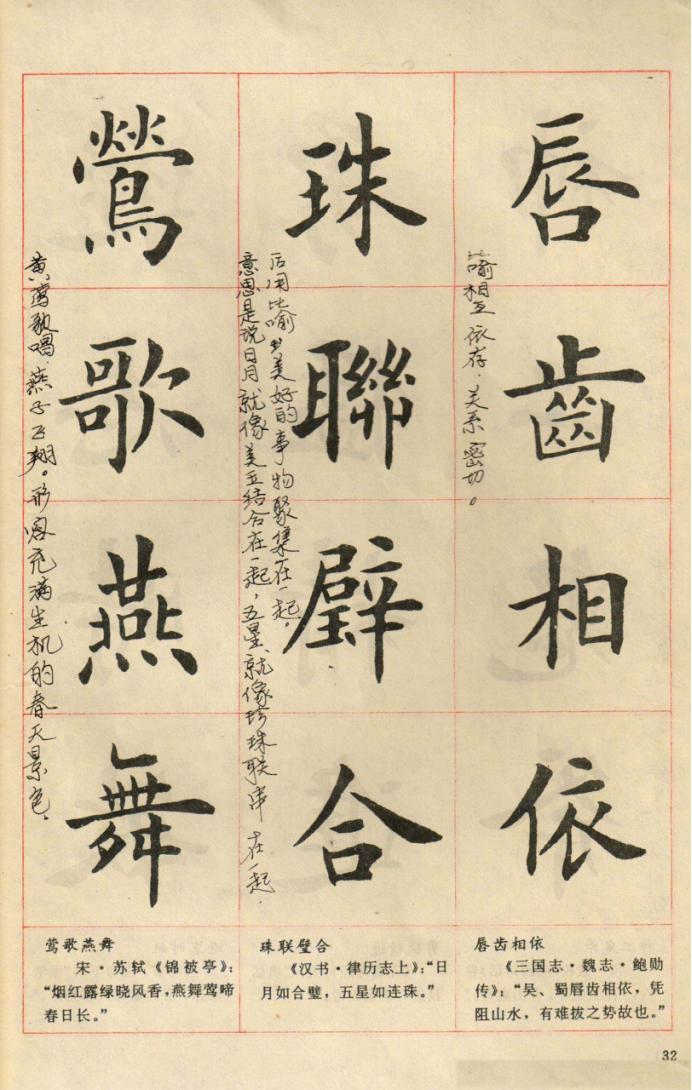 唇齒相依
比喻相互依存，关系密切。
珠聯璧合
后用比喻美好的事物聚集在一起。
意思是说日月就像美玉结合在一起，五星就像珍珠联串在一起.
鶯歌燕舞
黄莺歌唱，燕子飞翔。形容充满生机的春天景色.
唇齿相依
《三国志·魏志·鲍勋
传》：“吴、蜀唇齿相依，凭
阻山水，有难拔之势故也。”
珠联璧合
《汉书·律历志上》：“日
月如合璧，五星如连珠。”
莺歌燕舞
宋·苏轼《锦被亭》：
“烟红露绿晓风香，燕舞莺啼
春日长。”
32